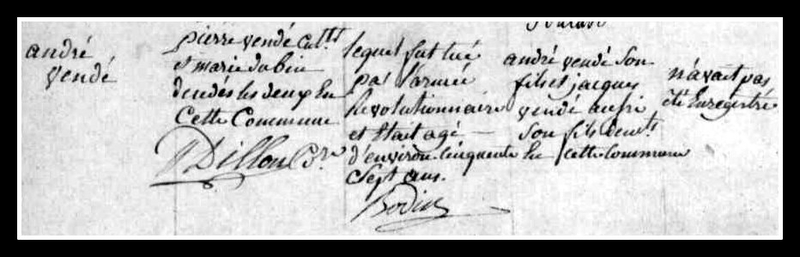 andré
vendé
pierre vendé cult.
et marie dubin
décédés les deux en
Cette Commune
Dillon
lequel fut tué
par l'armée
Revolutionnaire
et était agé
d'environ cinquante
sept ans.
Bodin
andré vendé son
fils et jacques
vendé aussi
son fils
en cette Commune
n'avait pas
été Enregistré